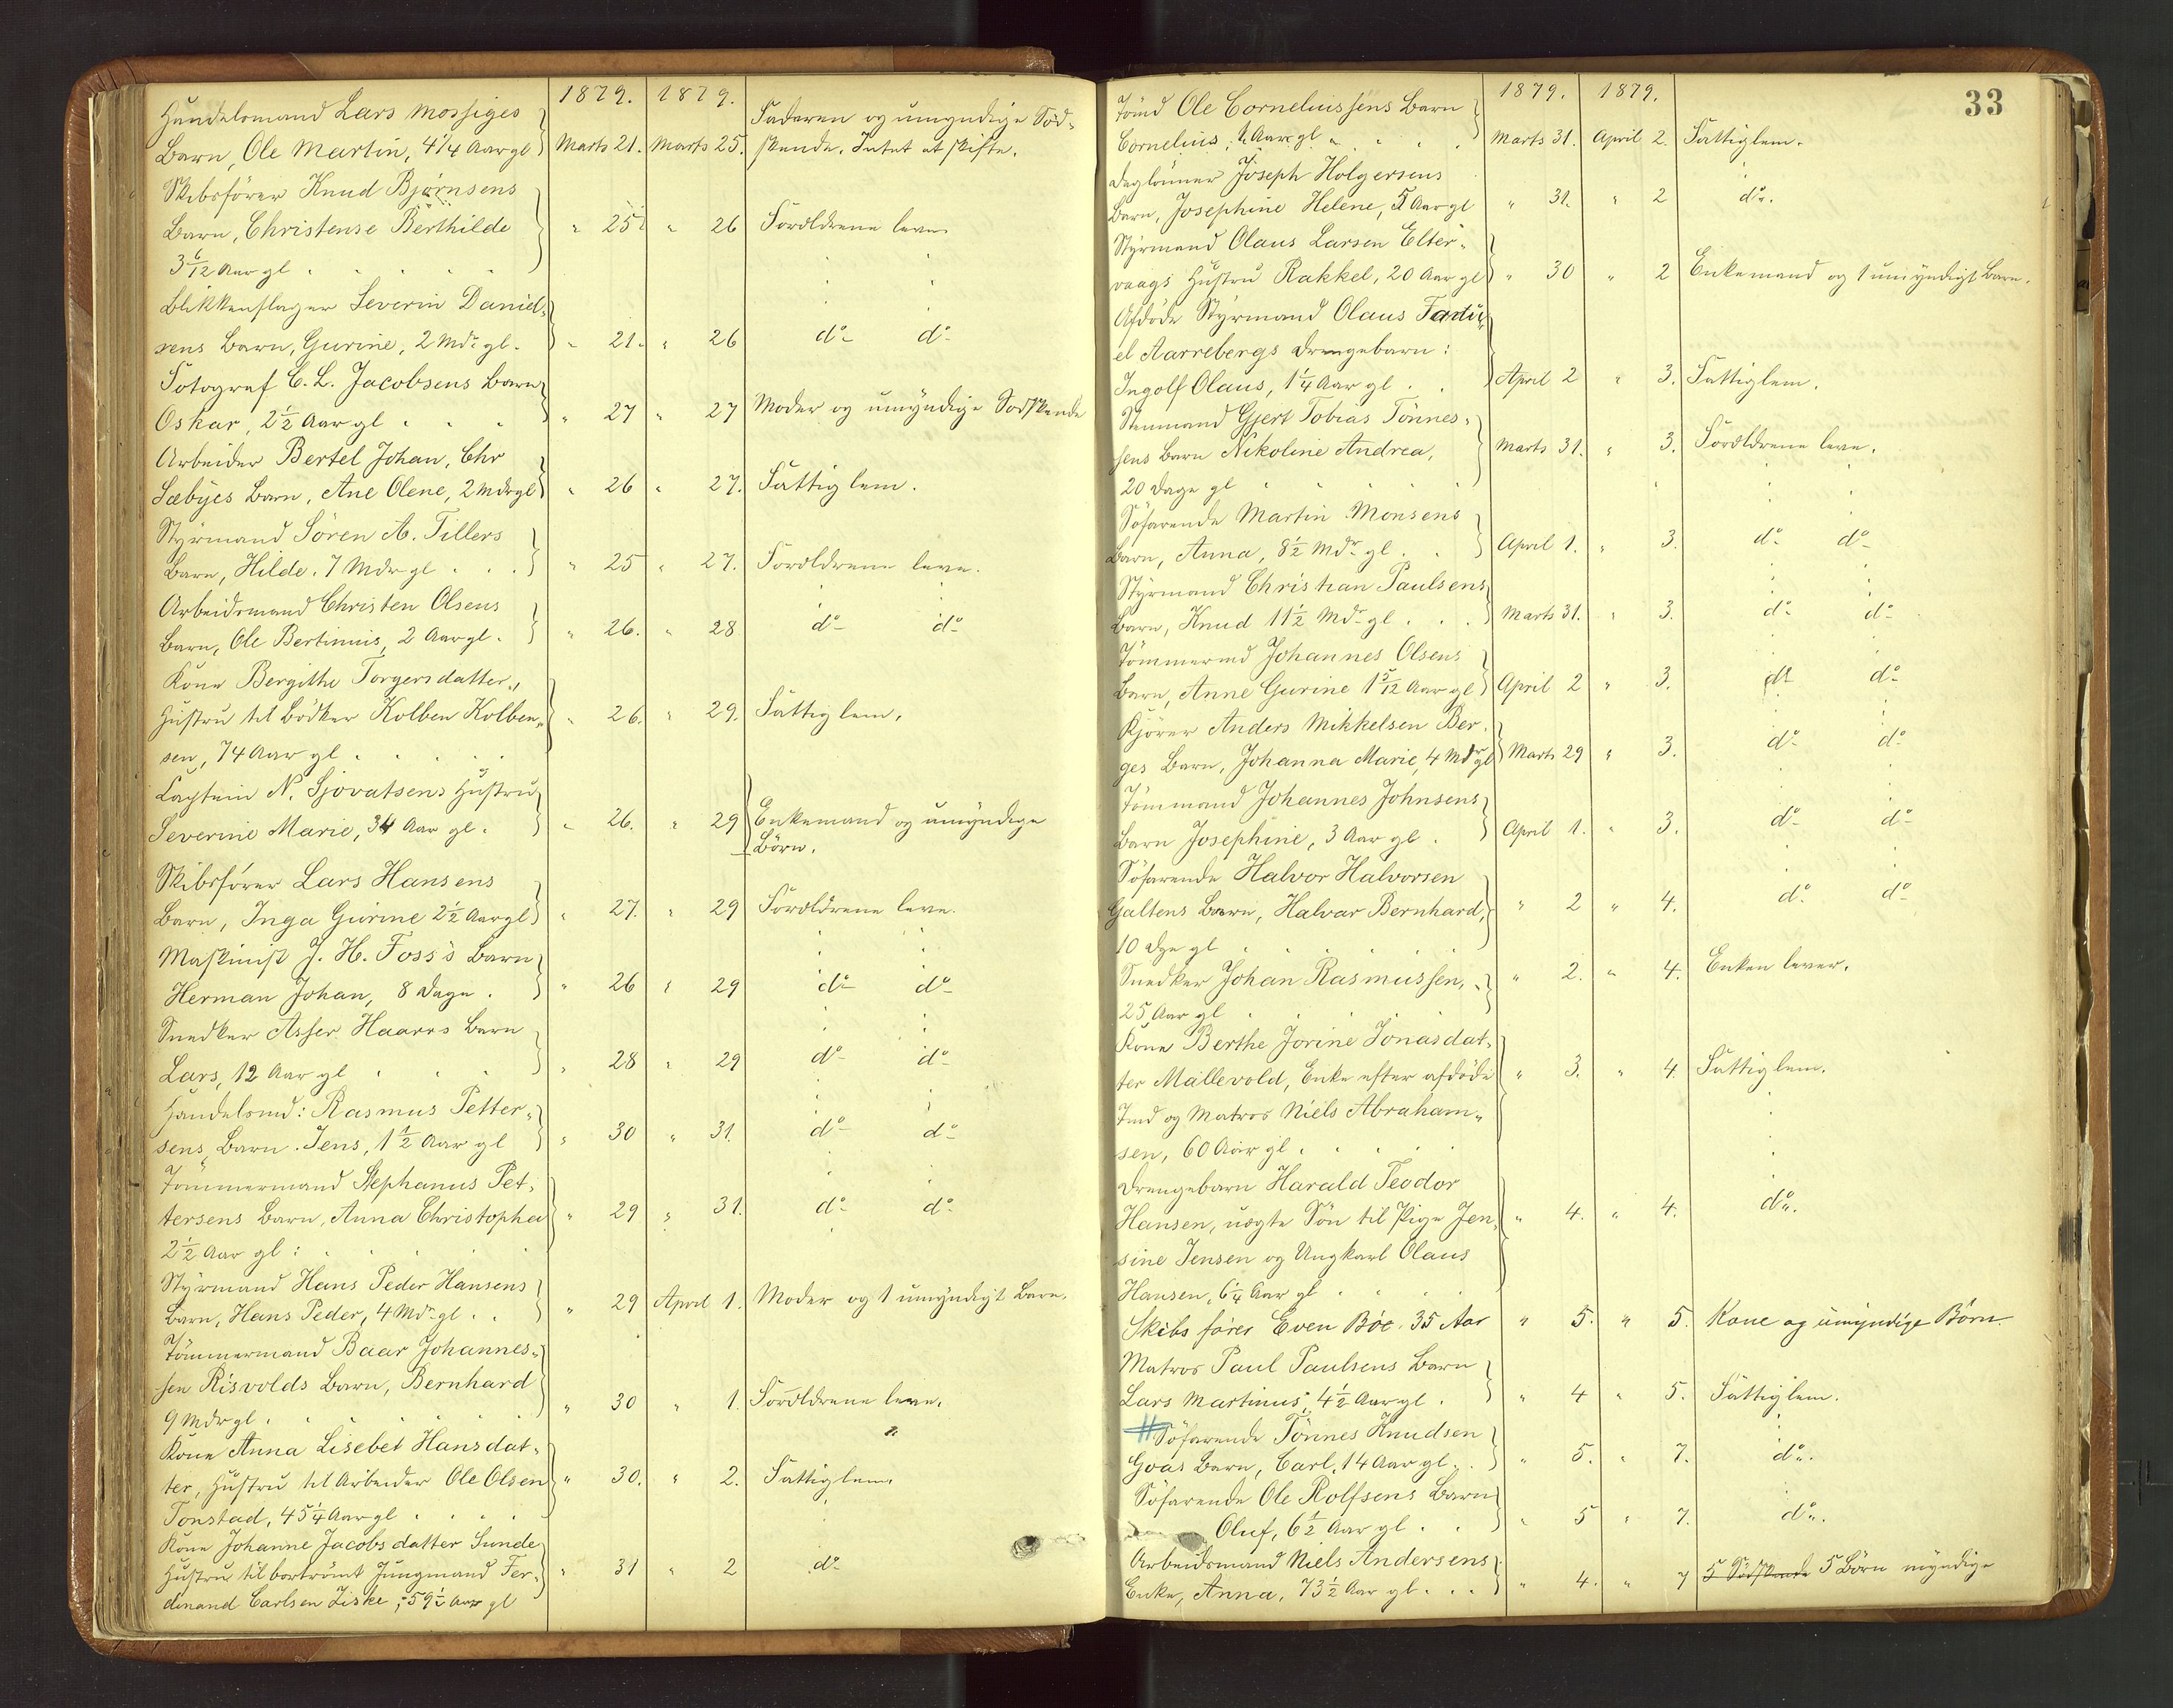 1879. 1879.
Handelsmand Lars Mossiges
Barn, Ole Martin, 4 1/4 Aar gl. Marts 21. Marts 25. Faderen og umyndige Sød-
skende. Intet at skifte.
Skibsfører Knud Bjørnsens
Barn, Christense Berthilde " 25 " 26 Forældrene leve.
3 6/12 Aar gl
Blikkenslager Severin Daniel-
sens Barn, Gurine, 2 Mdr. gl. " 21. " 26 do do
Fotograf C. L. Jacobsens Barn
Oskar, 2 1/2 Aar gl " 27 " 27 Moder og umyndige Sødskende
Arbeider Bertel Johan, Chr
Sæbyes Barn, Ane Olene, 2 Mdr gl " 26 " 27. Fattiglem.
Styrmand Sören A. Tillers
Barn, Hilde. 7 Mdr gl " 25 " 27. Forældrene leve.
Arbeidsmand Christen Olsens
Barn, Ole Bertinius, 2 Aar gl. " 26. " 28 do do
Kone Bergithe Torgersdatter,
Hustru til Bødker Kolben Kolben- " 26. " 29. Fattiglem.
sen, 74 Aar gl
Captein N. Sjovatsens Hustru
Severine Marie, 34 Aar gl. " 26. " 29 Enkemand og umyndige
Börn.
Skibsfører Lars Hansens
Barn, Inga Gurine 2 1/2 Aar gl " 27. " 29 Forældrene leve.
Maskinist J. H. Foss's Barn
Herman Johan, 8 Dage. " 26 " 29 do do
Snedker Asser Haarrs Barn
Lars, 12 Aar gl " 28 " 29 do do
Handelsmd: Rasmus Petter-
sens, Barn. Jens, 1 1/2 Aar gl " 30 " 31. do do
Tömmermand Stephanus Pet-
tersens Barn, Anna Christopha " 29 " 31. do do
2 1/2 Aar gl:
Styrmand Hans Peder Hansens
Barn, Hans Peder, 4 Mdr gl. " 29 April 1. Moder og 1 umyndigt Barn.
Tömmermand Baar Johannes-
sen Risvolds Barn, Bernhard " 30 " 1. Forældrene leve.
9 Mdr gl.
Kone Anna Lisebet Hansdat-
ter, Hustru til Arbeider Ole Olsen " 30. " 2. Fattiglem.
Tonstad, 45 1/4 Aar gl
Kone Johanne Jacobsdatter Sunde
Hustru til bortrömt Jungmand Fer- " 31 " 2 do
dinand Carlsen Ziske, 59 1/2 Aar gl
33
1879. 1879.
Tömd Ole Corneliussens Barn
Cornelius, Aar gl Marts 31. April 2. Fattiglem.
Daglønner Joseph Holgersens
Barn, Josephine Helene, 5 Aar gl " 31. " 2 do.
Styrmand Olaus Larsen Elter-
vaags Hustru Rakkel, 20 Aar gl " 30 " 2 Enkemand og 1 umyndigt Barn.
Afdöde Styrmand Olaus
el Aarrebergs Drengebarn:
Ingolf Olaus, 1 1/4 Aar gl. April 2 " 3. Fattiglem.
Stenmand Gjert Tobias Tönnes-
sens Barn Nikoline Andrea, Marts 31. " 3. Forældrene leve.
20 Dage gl
Söfarende Martin Monsens
Barn, Anna, 8 1/2 Mdr gl. April 1. " 3. do do
Styrmand Christian Paulsens
Barn, Knud 11 1/2 Mdr gl. Marts 31. " 3. do do
Tömmermd Johannes Olsens
Barn, Anne Gurine 1 5/12 Aar gl April 2 " 3. do do
Kjörer Anders Mikkelsen Ber-
ges Barn, Johanna Marie, 4 Mdr gl Marts 29 " 3. do do
Tömmand Johannes Johnsens
Barn Josephine, 3 Aar gl. April 1. " 3. do do
Söfarende Halvor Halvorsen
Galtens Barn, Halvar Bernhard, " 2 " 4. do do
10 Dge gl
Snedker Johan Rasmussen, " 2. " 4. Enken lever.
25 Aar gl
Kone Berthe Jorine Jonasdat-
ter Mallevold, Enke efter afdöde " 3. " 4. Fattiglem.
Tmd og Matros Niels Abraham-
sen, 60 Aar gl.
Drengebarn Harald Teodor
Hansen, uægte Sön til Pige Jen- " 4. " 4. do.
sine Jensen og Ungkarl Olaus
Hansen, 6 1/4 Aar gl
Skibsfører Even Böe. 35 Aar " 5. " 5. Kone og umyndige Börn.
Matros Paul Paulsens Barn
Lars Martinius, 4 1/2 Aar gl. " 4 " 5. Fattiglem.
Söfarende Tönnes Knudsen
Goas Barn, Carl, 14 Aar gl. " 5. " 7. do.
Söfarende Ole Rolfsens Barn
Oluf, 6 1/2 Aar gl. " 5 " 7. do.
Arbeidsmand Niels Andersens
Enke, Anna, 73 1/2 Aar gl. " 4. " 7 5 Sødskende 5 Börn myndige